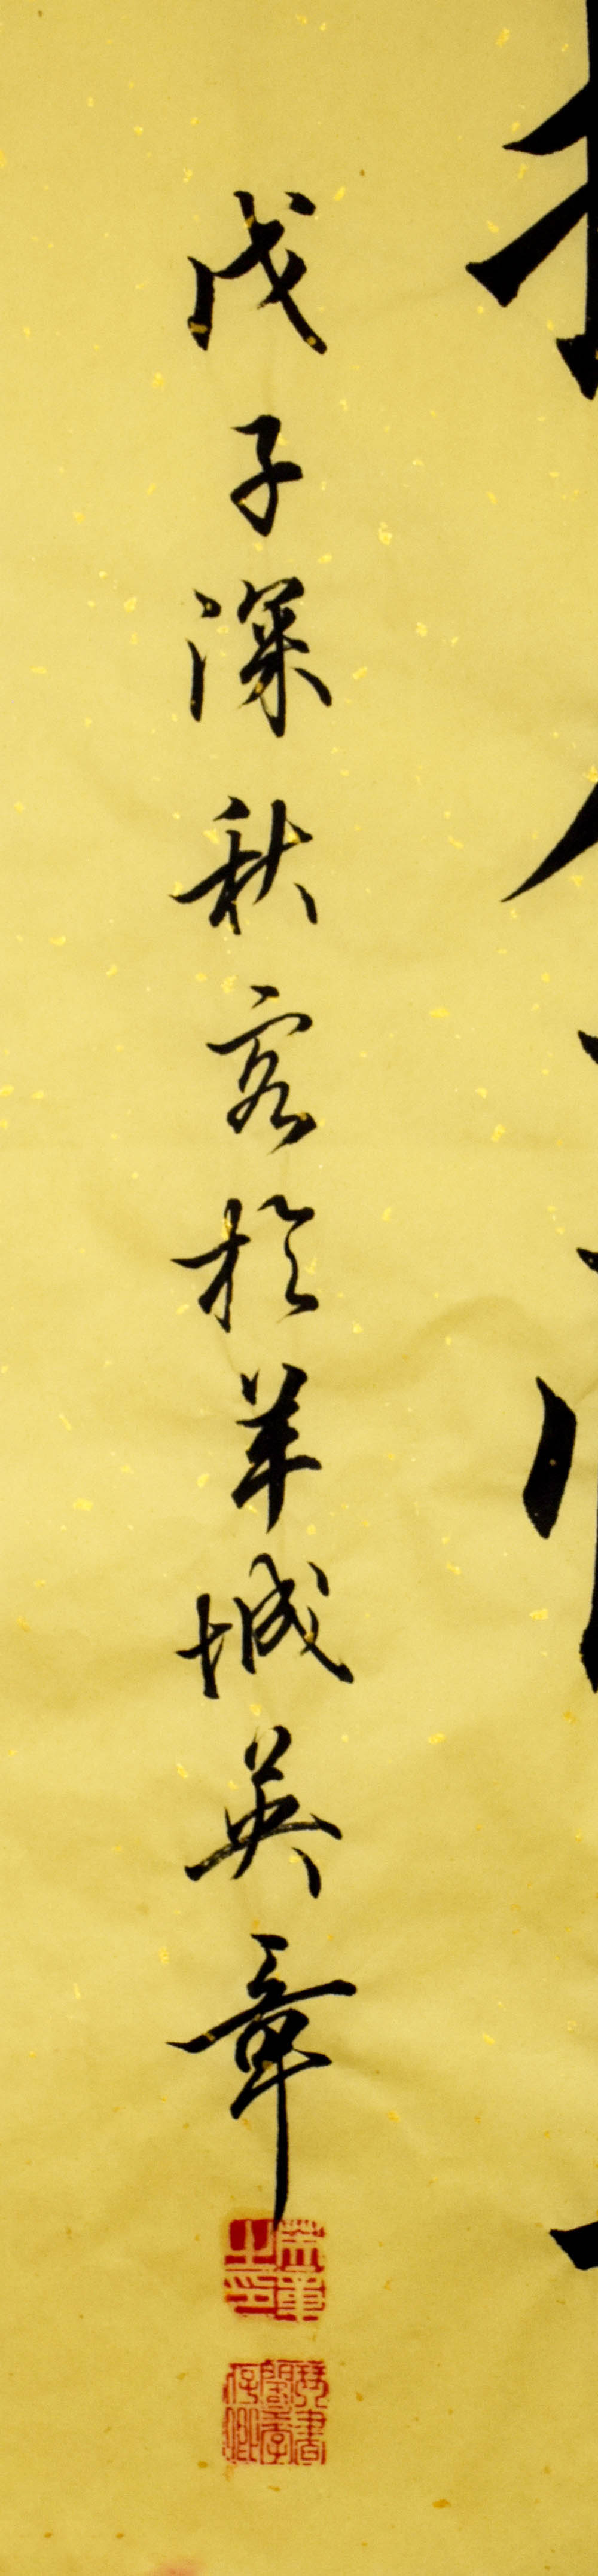 戊子深秋客於羊城英章